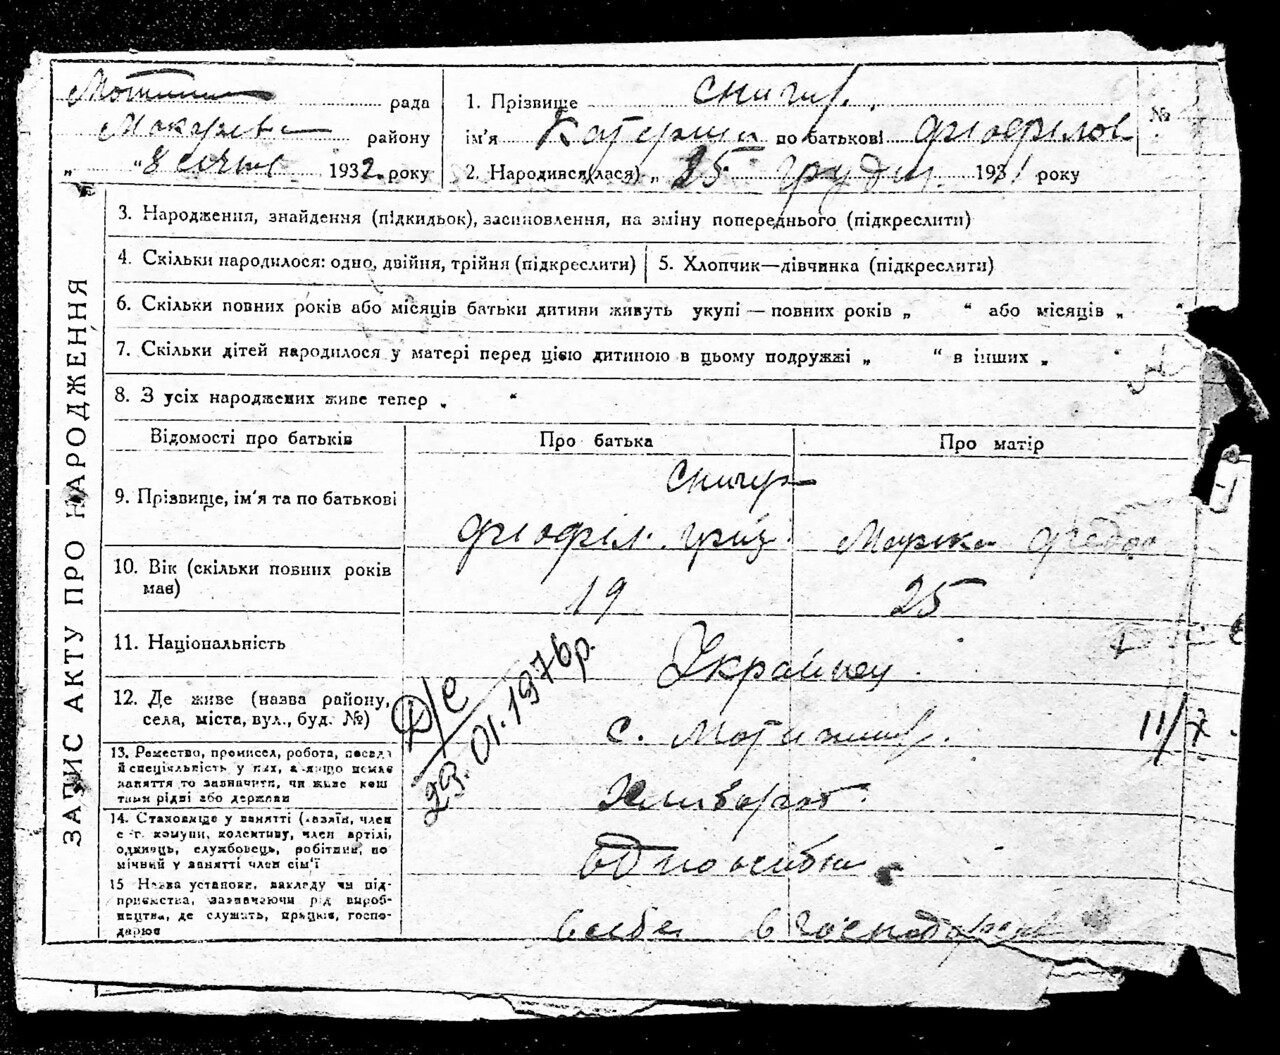 рада
Макарівс району
„ " 8 січня 1932. року
1. Прізвище Снигир.
ім'я Катерина по батькові Феофілов
2. Народився(лася) „ 25 грудня 1931 року
№
ЗАПИС АКТУ ПРО НАРОДЖЕННЯ
3. Народження, знайдення (підкидьок), засиновлення, на зміну попереднього (підкреслити)
4. Скільки народилося: одно, двійня, трійня (підкреслити)
5. Хлопчик—дівчинка (підкреслити)
6. Скільки повних років або місяців батьки дитини живуть укупі — повних років „ " або місяців „ "
7. Скільки дітей народилося у матері перед цією дитиною в цьому подружжі „ " в інших „ "
8. З усіх народжених живе тепер „ "
Відомості про батьків
Про батька
Про матір
9. Прізвище, ім'я та по батькові
Снигур
Феофіл. Гриц.
Марія Федор
10. Вік (скільки повних років
має)
19
25
11. Національність
Українец
12. Де живе (назва району,
села, міста, вул., буд. №)
с. Мотижин.
11/X.
Д/с
29.01.1976р.
13. Ремество, промисел, робота, посада
й спеціяльність у них, а якщо немає
заняття то зазначити, чи живе кош
тами рідні або держави
Хлибороб.
14. Становище у занятті (хазяїн, член
с.-г. комуни, колективу, член артілі,
одинець, службовець, робітник, по
мічний у занятті член сім'ї
одноосібник
15 Назва установи, закладу чи під-
приємства, зазначаючи рід вироб-
ництва, де служить, працює, госпо-
дарює
в себе в господарстві